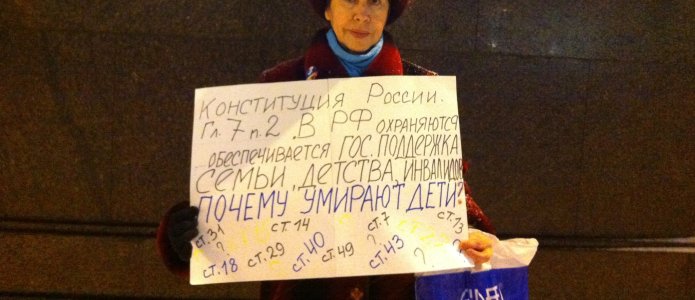 Конституция России.
Гл. 7 п. 2. В РФ охраняются
обеспечивается гос. поддержка
семьи, детства, инвалидов
ПОЧЕМУ УМИРАЮТ ДЕТИ?
ст. 31 ст. 14 ст. 7 ст. 13
? ? ?
ст. 18 ст. 29 ст. 40 ст. 49 ст. 43 ? ?